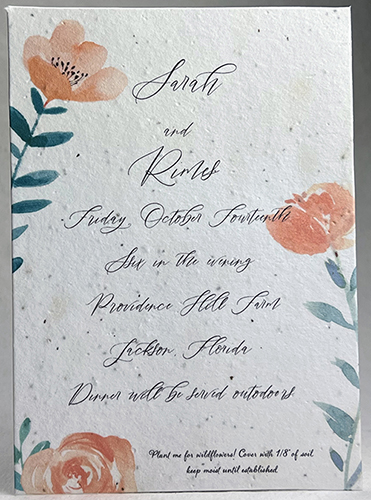 Sarah
and
Rimes
Friday, October Fourteenth
Six in the evening
Providence Hill Farm
Jackson, Florida
Dinner will be served outodoors
Plant me for wildflowers! Cover with 1/8" of soil
keep moist until established